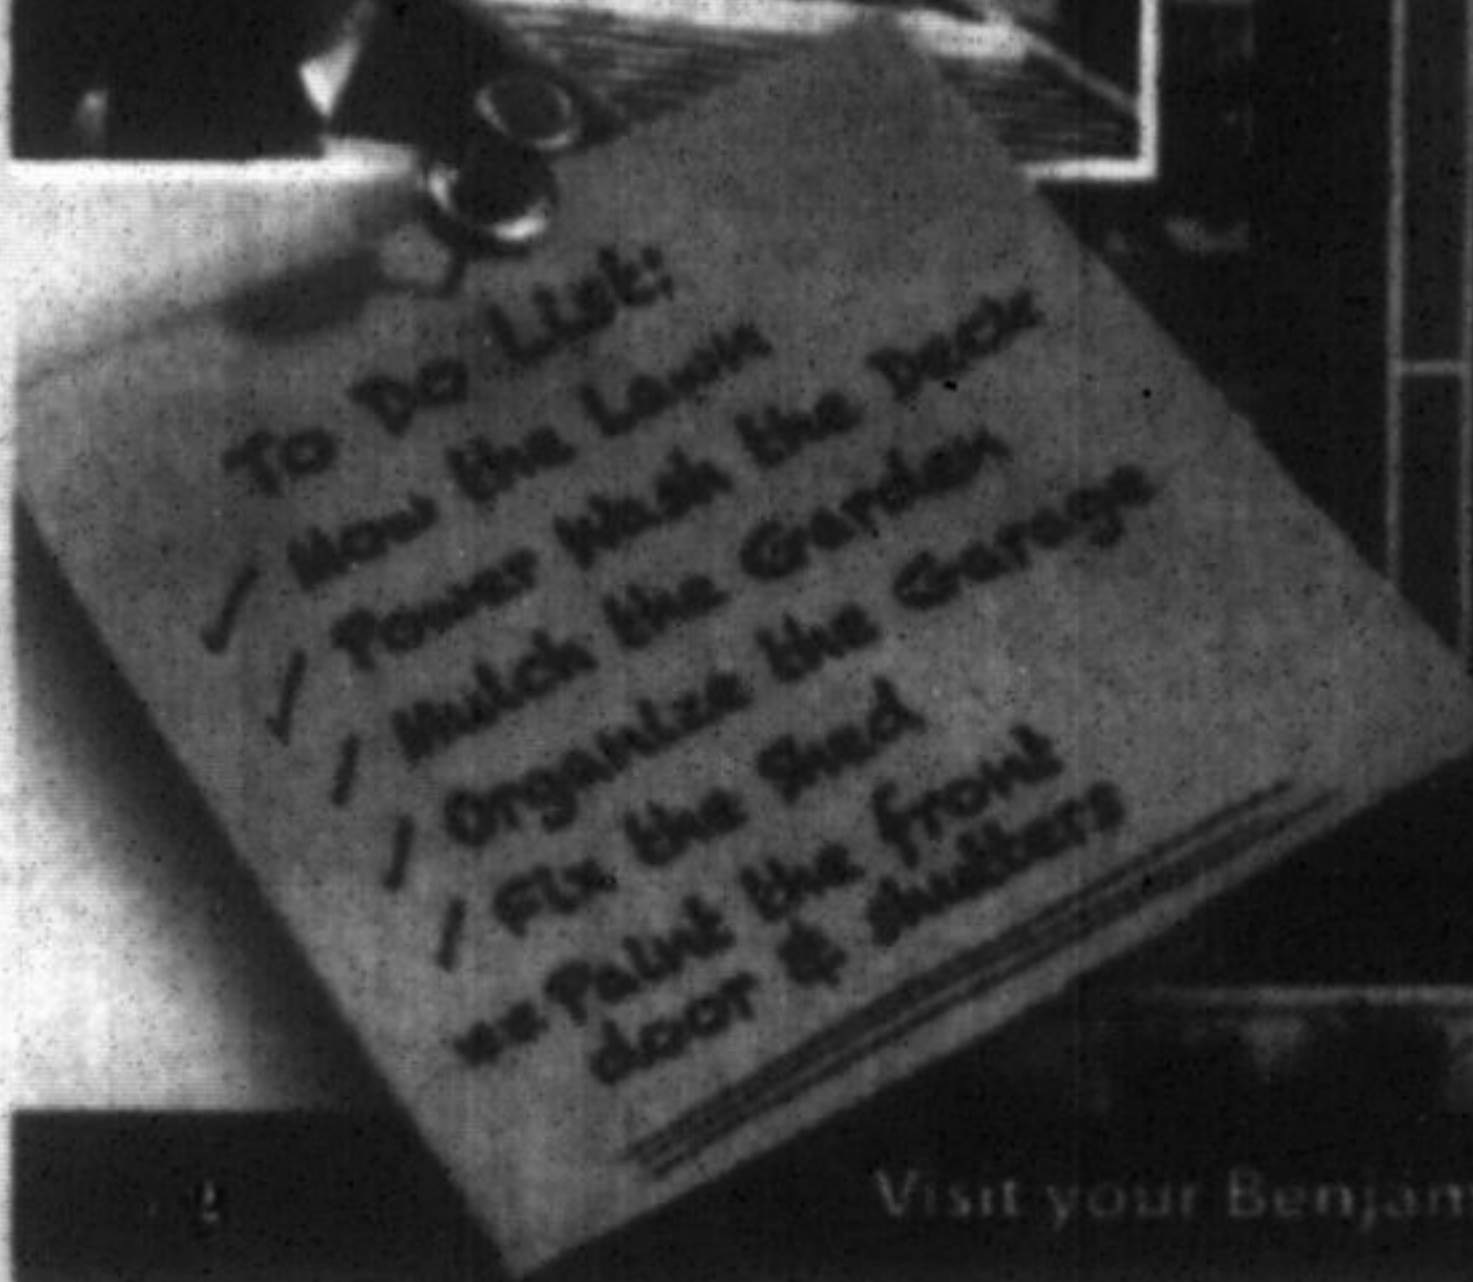 To Do List:
✓ Mow the Lawn
✓ Power Wash the Deck
✓ Mulch the Garden
✓ Organize the Garage
✓ Fix the Shed
** Paint the front
door & shutters
Visit your Benjam